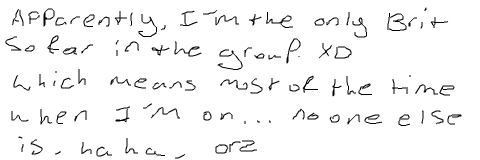 Apparently, I'm the only Brit
so far in the group. XD
which means most of the time
when I'm on... no one else
is, haha, orz